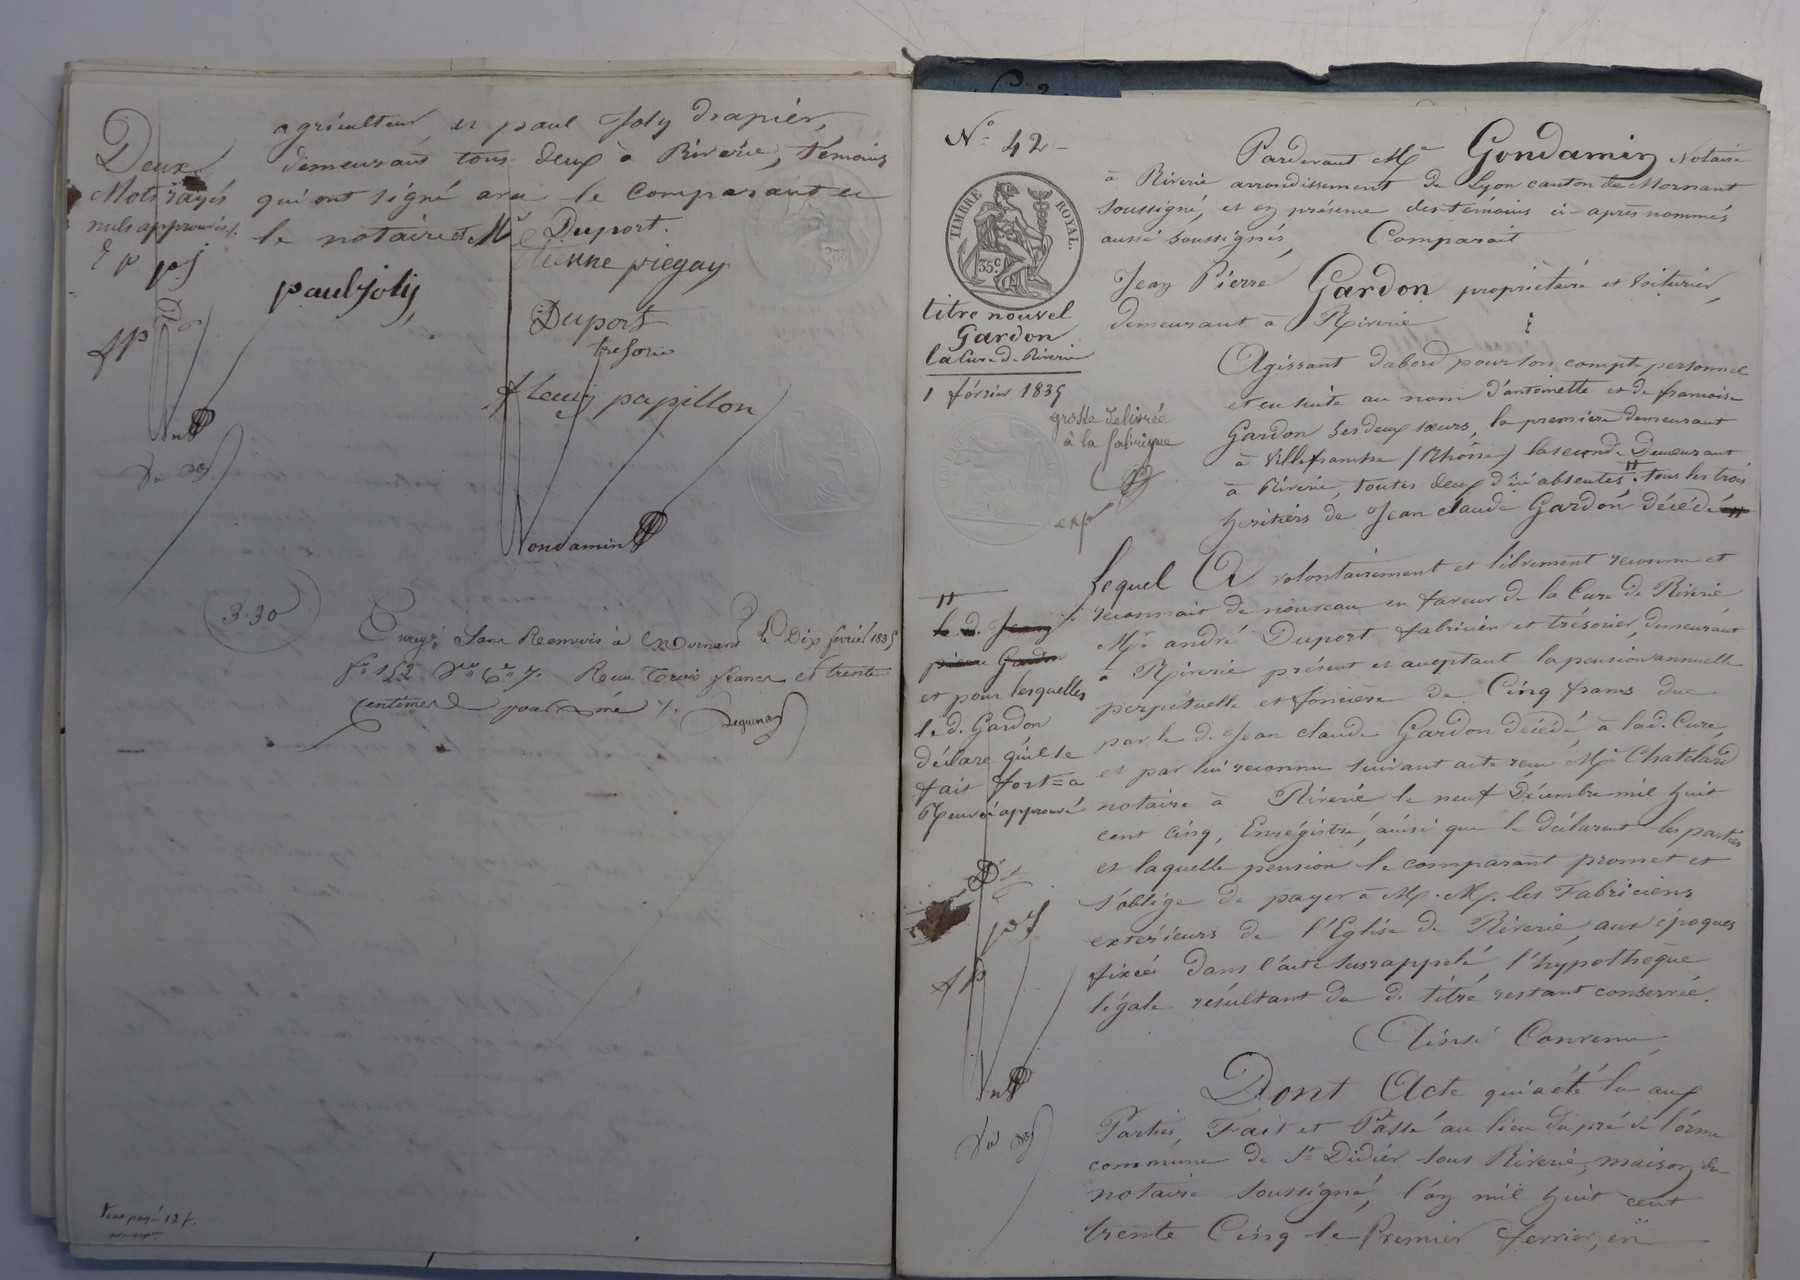 agriculteur, et paul Joly drapier,
demeurant tous deux à Riverie, témoins
qui ont signé avec le comparant et
le notaire et Mr Duport.
Deux
Mots rayés
nuls approuvés /.
E p p J
Etienne piegay
paul joly
Duport
tresorier
fleury papillon
Gondamin
3.30
Enregé. sans Renvois à Mornant le Dix février 1835
fo 152 Vo Ce 7. Reçu Trois francs et trente
centimes
No 42
Pardevant Me Gondamin Notaire
à Riverie arrondissement de Lyon canton de Mornant
soussigné, et en présence des témoins ci-après nommés
aussi soussignés, Comparait
TIMBRE ROYAL.
35c
Jean Pierre Gardon propriétaire et voiturier,
demeurant à Riverie
titre nouvel
Gardon
la Cure de Riverie
1 février 1835
grosse delivrée
à la fabrique
exp
Agissant d'abord pour son compte personnel
et en suite au nom d'antoinette et de francoise
Gardon ses deux sœurs, la première demeurant
à Villefranche (Rhône) la seconde Demeurant
à Riverie, toutes deux d'ici absentes. tous les trois
héritiers de Jean claude Gardon décédé
Lequel A volontairement et librement reconnu et
reconnait de nouveau en faveur de la Cure de Riverie
Mr andré Duport fabricien et trésorier, demeurant
à Riverie présent et acceptant la pension annuelle
perpétuelle et foncière de Cinq francs due
par le d. Jean claude Gardon décédé à lad. Cure,
et par lui reconnu suivant acte reçu Me Chatelard
notaire à Riverie le neuf Décembre mil huit
cent cinq, Enrégistré, ainsi que le déclarent les parties
et laquelle pension le comparant promet et
s'oblige de payer à M. M. les Fabriciens
exterieurs de l'Eglise de Riverie, aux époques
fixées dans l'acte susrappelé, l'hypothèque
légale résultant du d. titre restant conservée.
le d. Jean
pierre Gardon
et pour lesquelles
le d. Gardon
déclare qu'il se
fait fort =
Renvoi approuvé
Ainsi Convenu,
Dont Acte qui a été lu aux
Parties, Fait et Passé au lieu du pré de l'orme
commune de St Didier sous Riverie, maison du
notaire soussigné, l'an mil huit cent
trente Cinq le Premier fevrier, en